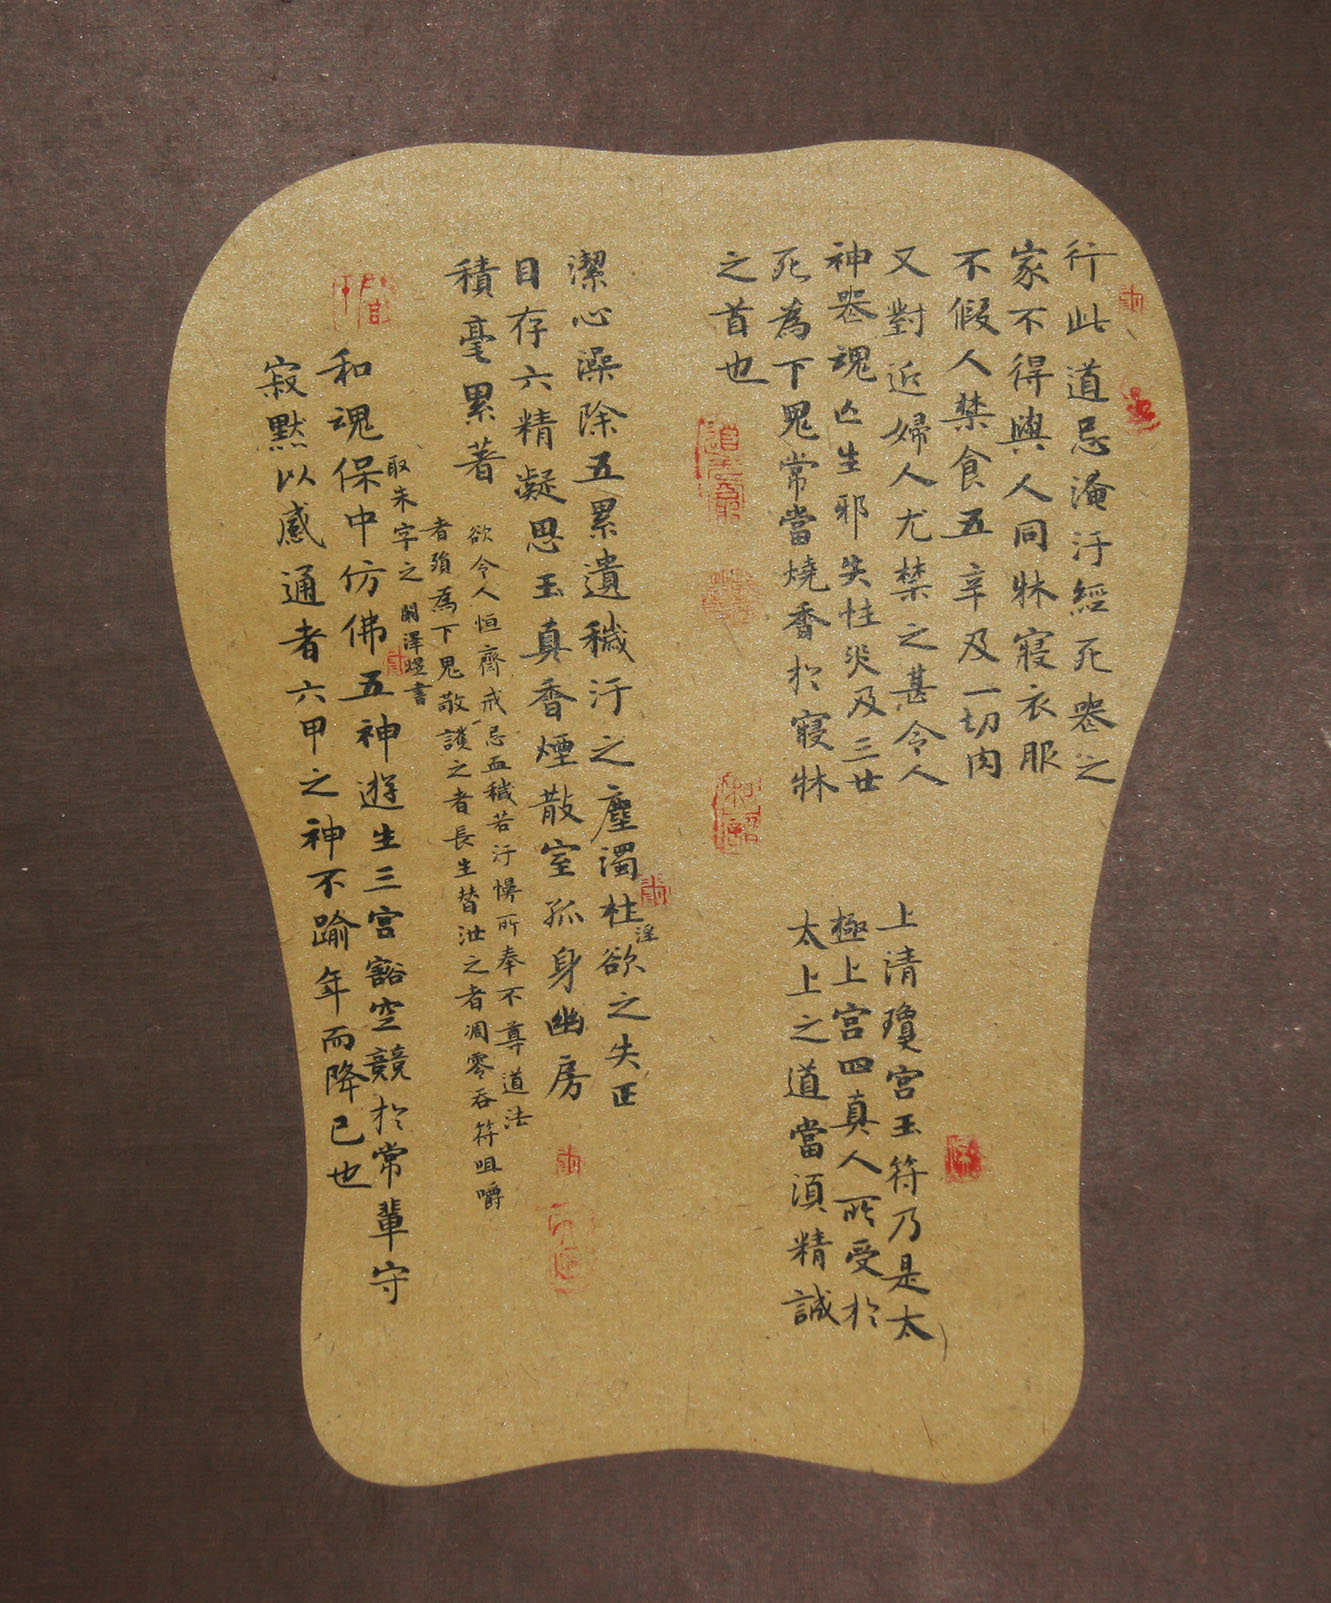 行此道忌淹汙經死器之
家不得與人同牀寢衣服
不假人禁食五辛及一切肉
又對近婦人尤禁之甚令人
神器魂亡生邪失性災及三世
死為下鬼常當燒香於寢牀
之首也
上清瓊宮玉符乃是太
極上宮四真人所受於
太上之道當須精誠
潔心澡除五累遺穢汙之塵濁杜淫欲之失正
目存六精凝思玉真香煙散室孤身幽房
積毫累著
欲令人恒齋戒忌血穢若汙慢所奉不尊道法
者殞為下鬼敬護之者長生替泄之者凋零吞符咀嚼
取朱字之
和魂保中仿佛五神遊生三宮豁空競於常輩守
寂默以感通者六甲之神不踰年而降已也
澤煜書